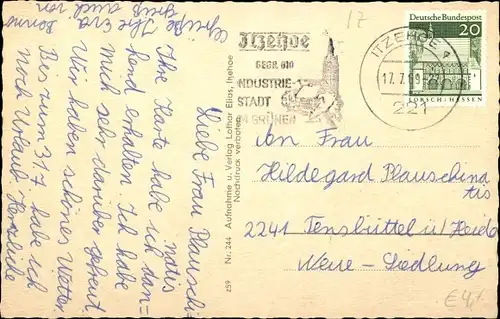 Liebe Frau Plauschi-
natis
Ihre Karte habe ich dan-
kend erhalten. Ich habe
mich sehr darüber gefreut
Wir haben schönes Wetter
Bis zum 31.7 habe ich
noch Urlaub Herzliche
Grüße Ihre Eva
Gruß auch von
259 Nr. 244 Aufnahme u. Verlag Lothar Elias, Itzehoe
Nachdruck verboten
Itzehoe
GEGR. 810
INDUSTRIE-
STADT
IM GRÜNEN
ITZEHOE
17.7.69
221
Deutsche Bundespost
20
LORSCH/HESSEN
An Frau
Hildegard Plauschina
tis
2241 Tensbüttel ü/Heide
Neue-Siedlung